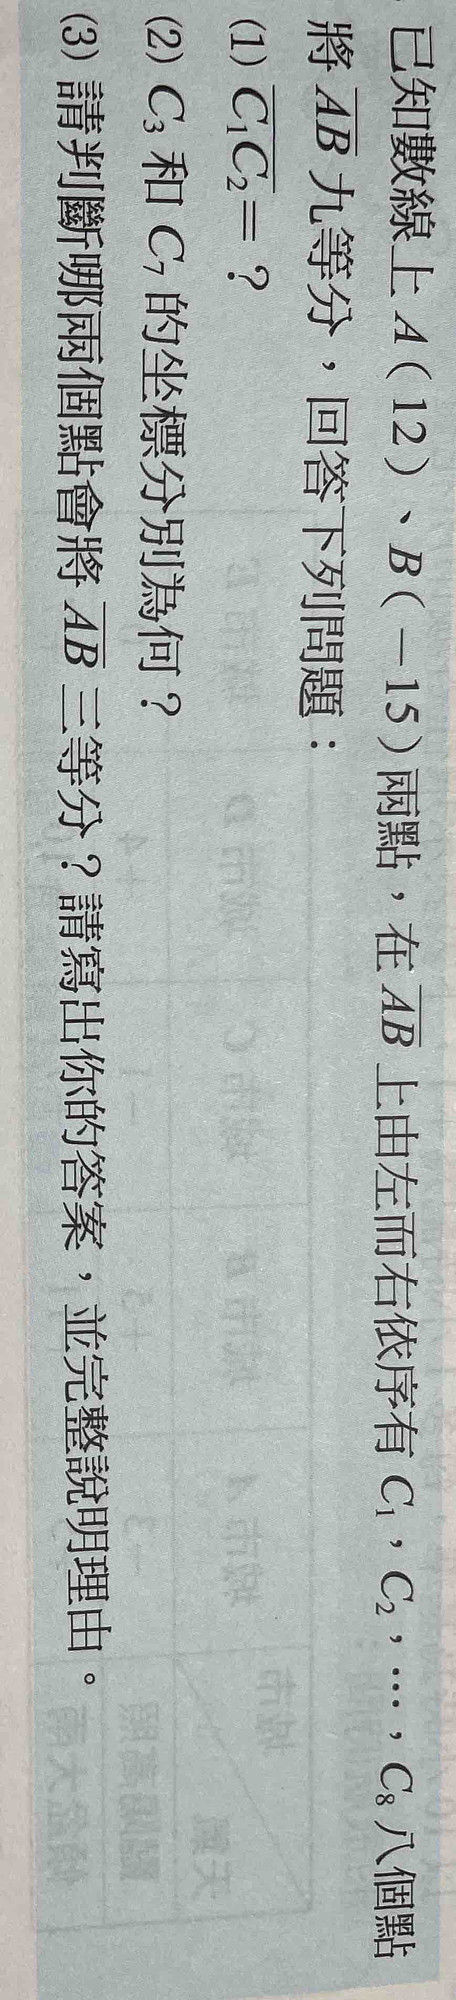 已知數線上 A(12)、B(-15)兩點,在 AB 上由左而右依序有 C₁,C₂,…,C₈ 八個點
將 AB 九等分,回答下列問題:
(1) C₁C₂=?
(2) C₃ 和 C₇ 的坐標分別為何?
(3) 請判斷哪兩個點會將 AB 三等分?請寫出你的答案,並完整說明理由。